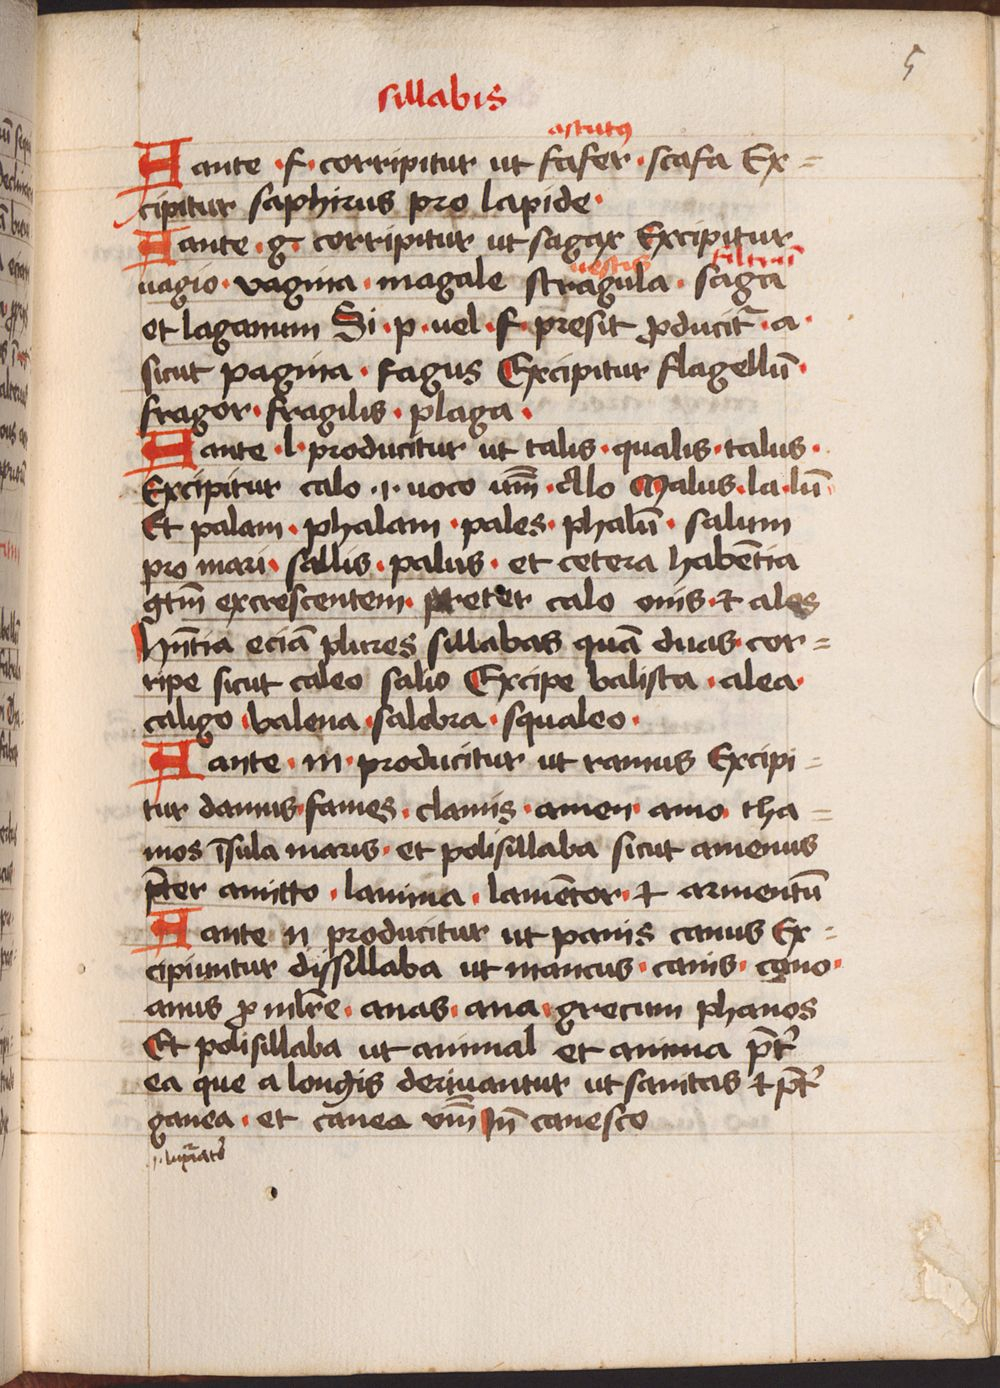 5
sillabis
astutꝯ
A ante ·f· corripitur ut fafer · scafa Ex=
cipitur saphirus pro lapide·
A ante · g· corripitur ut sagax Excipitur
uestis filtrū
uagio · vagina · magale stragula · saga
et laganum Si · p · uel · f · presit ꝓducit᷑ · a ·
sicut pagina · fagus Excipitur flagellū ·
fragor · fragilis · plaga ·
A ante · l · producitur ut talis · qualis · talus ·
Excipitur calo ·i· uoco Alo Malus · la · lū
Et palam · phalam · pales · phalū · salum
pro mari · sallis · palus · et cetera habētia
gtm̄ excrescentem · preter calo onis · et ales
hn̄tia eciā plures sillabas quā duas cor=
ripe sicut caleo salio Excipe balista · alea·
caligo · balena · salebra · squaleo ·
A ante · m · producitur ut ramus Excipi=
tur damus · fames · clamis · amen · amo tha=
mos īsula maris · et polisillaba sicut amenus
p̄ter amitto · lamina · lamētor · et armentū
A ante n producitur ut panis canus Ex=
cipiuntur dissillaba ut mancus · canis · cano ·
anus ꝓ · anas · ana · grecum phanos
Et polisillaba ut animal et anima p̄t᷑
ea que a longis deriuantur ut sanitas et p̄t᷑
ganea · et canea canesco